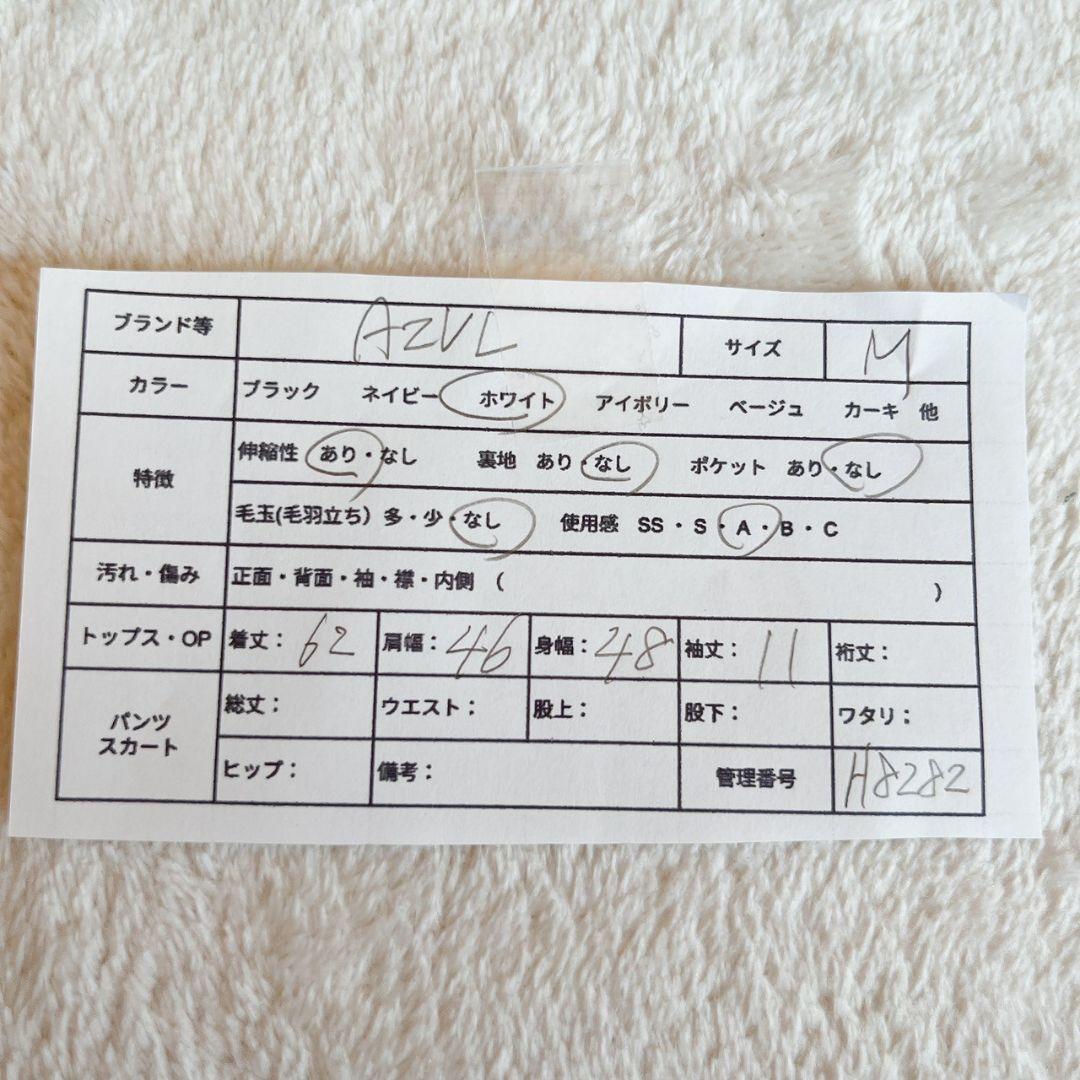 ブランド等 AZUL サイズ M
カラー ブラック ネイビー ホワイト アイボリー ベージュ カーキ 他
特徴 伸縮性 あり・なし 裏地 あり・なし ポケット あり・なし
毛玉(毛羽立ち) 多・少・なし 使用感 SS・S・A・B・C
汚れ・傷み 正面・背面・袖・襟・内側 ( )
トップス・OP 着丈: 62 肩幅: 46 身幅: 48 袖丈: 11 裄丈:
パンツ スカート 総丈: ウエスト: 股上: 股下: ワタリ:
ヒップ: 備考: 管理番号 H8282